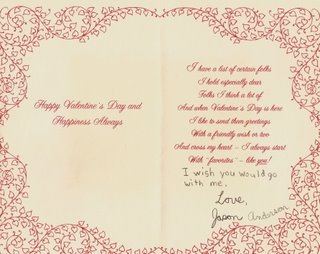 Happy Valentine's Day and
Happiness Always
I have a list of certain folks
I hold especially dear
Folks I think a lot of
And when Valentine's Day is here
I like to send them greetings
With a friendly wish or two
And cross my heart – I always start
With "favorites" – like you!
I wish you would go
with me.
Love,
Jason Anderson